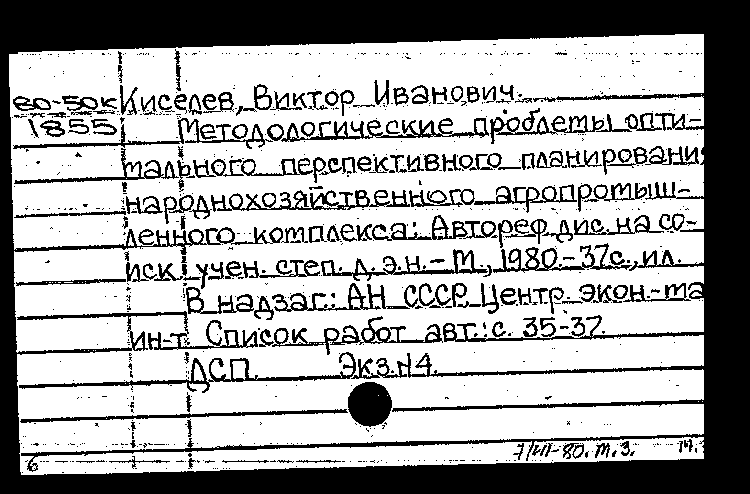 80-50к Киселев, Виктор Иванович.
1855 Методологические проблемы опти-
мального перспективного планирования
народнохозяйственного агропромыш-
ленного комплекса: Автореф. дис. на со-
иск. учен. степ. д.э.н. - М., 1980. - 37с., ил.
В надзаг.: АН СССР, Центр. экон.-ма
ин-т. Список работ авт.: с. 35-37.
ДСП. Экз. №4.
6 7/VII-80. М.З. М.